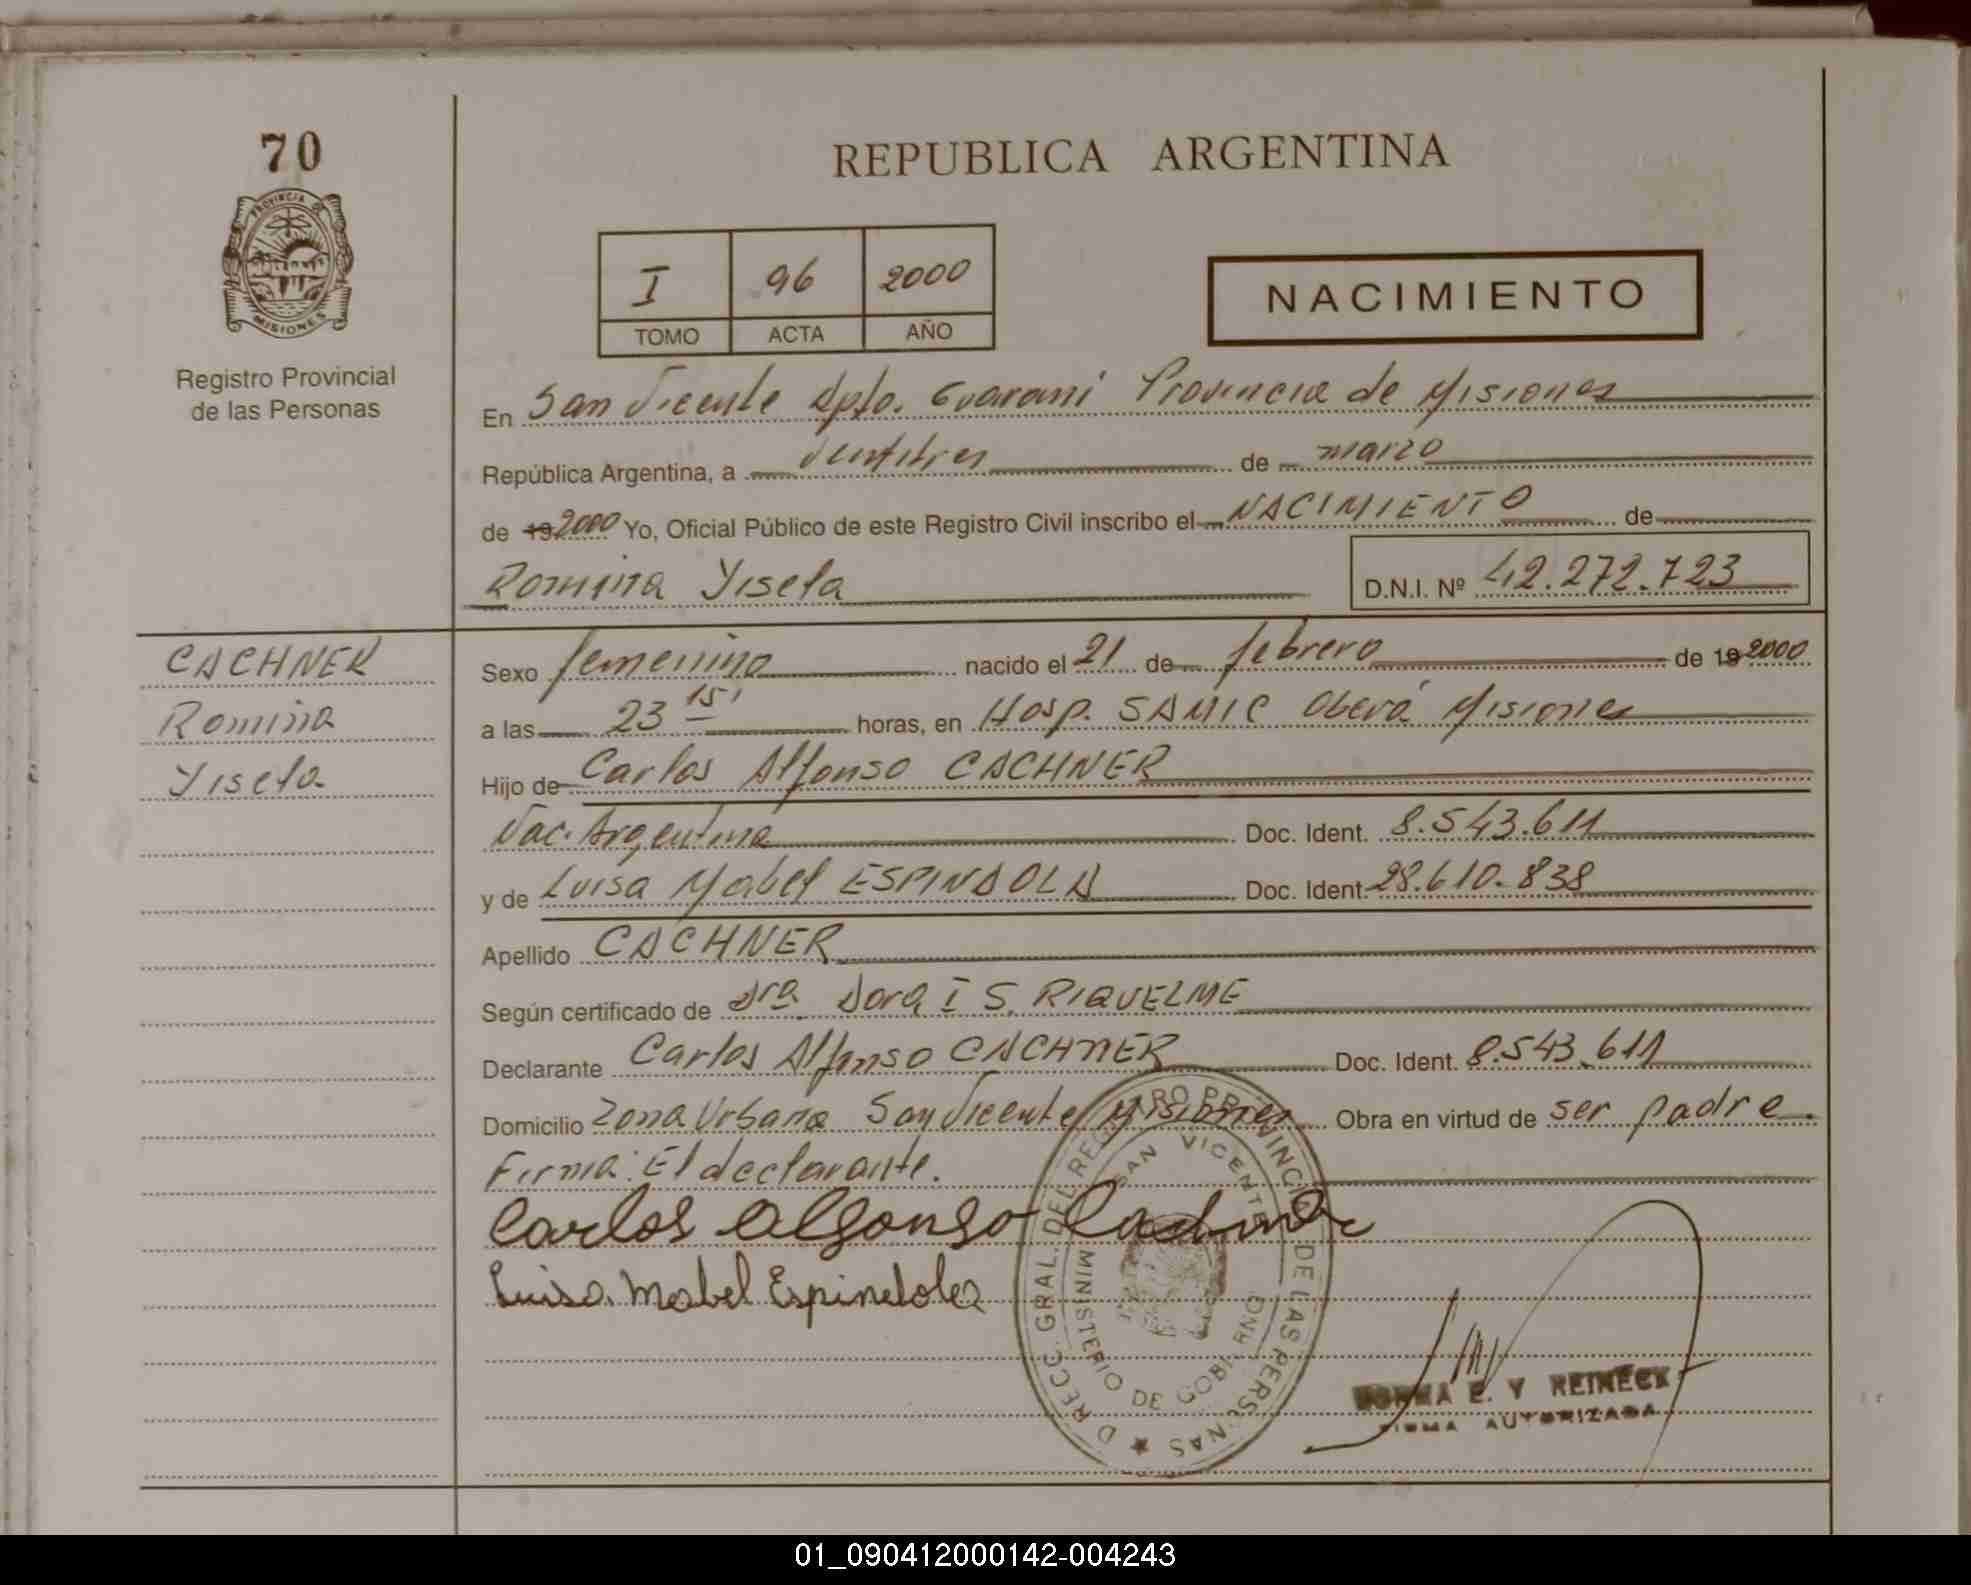 70
PROVINCIA DE
MISIONES
Registro Provincial
de las Personas
REPUBLICA ARGENTINA
I 96 2000
TOMO ACTA AÑO
NACIMIENTO
En San Vicente Dpto. Guaraní Provincia de Misiones
República Argentina, a veintitres de marzo
de 19 2000 Yo, Oficial Público de este Registro Civil inscribo el NACIMIENTO de
Romina Yisela D.N.I. Nº 42.272.723
CACHNER
Romina
Yisela
Sexo femenino nacido el 21 de febrero de 19 2000
a las 23 15' horas, en Hosp. SAMIC Oberá Misiones
Hijo de Carlos Alfonso CACHNER
Nac. Argentina Doc. Ident. 8.543.611
y de Luisa Mabel ESPINDOLA Doc. Ident. 28.610.838
Apellido CACHNER
Según certificado de Dra. Dora I S. RIQUELME
Declarante Carlos Alfonso CACHNER Doc. Ident. 8.543.611
Domicilio Zona Urbana San Vicente Misiones Obra en virtud de ser padre.
Firma: El declarante.
Carlos Alfonso Cachner
Luisa Mabel Espindola
DIRECC. GRAL. DEL REGISTRO PROVINCIAL DE LAS PERSONAS
SAN VICENTE
MINISTERIO DE GOBIERNO
NORMA E. Y REINECK
FIRMA AUTORIZADA
01_090412000142-004243